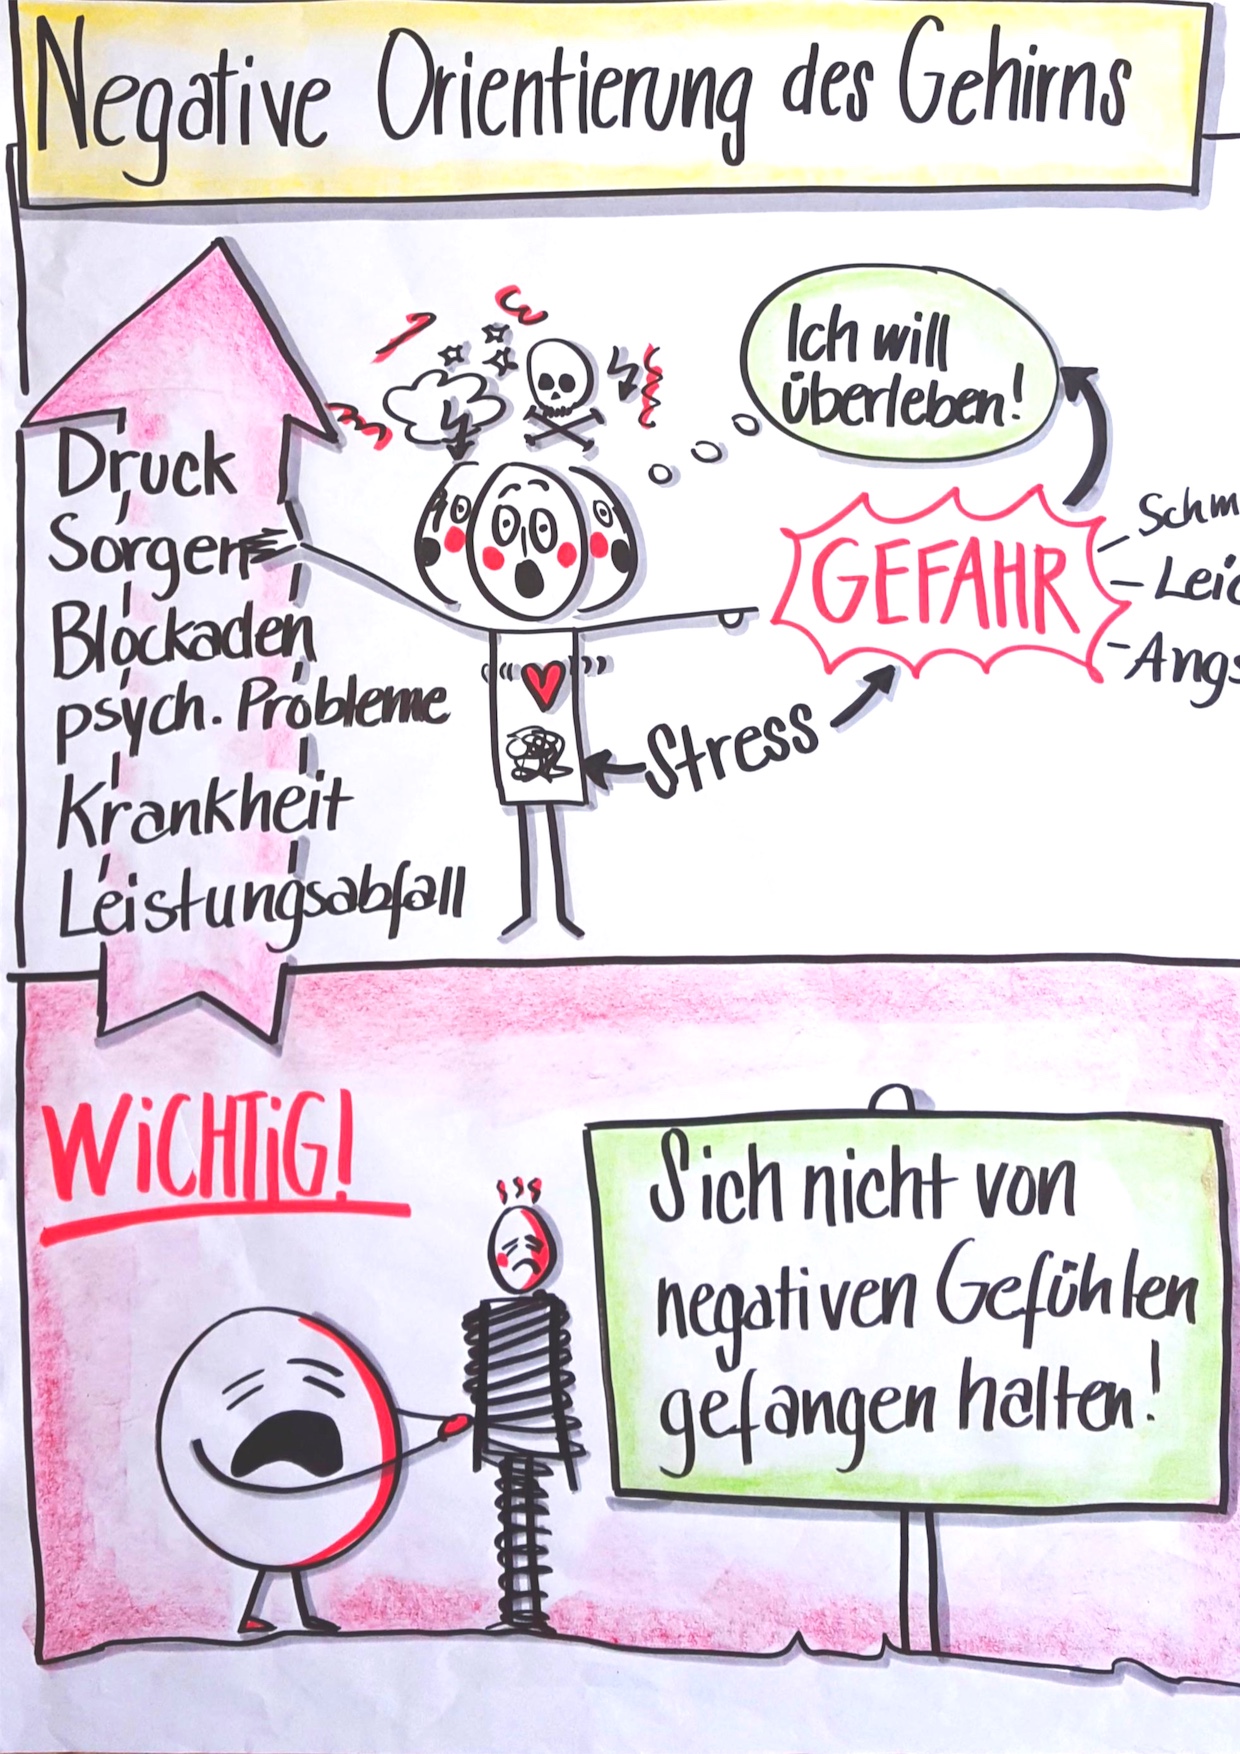 Negative Orientierung des Gehirns
Ich will
überleben!
Druck
Sorgen
Blockaden
psych. Probleme
Krankheit
Leistungsabfall
GEFAHR
- Schm
- Leic
- Angs
Stress
WiCHTiG!
Sich nicht von
negativen Gefühlen
gefangen halten!